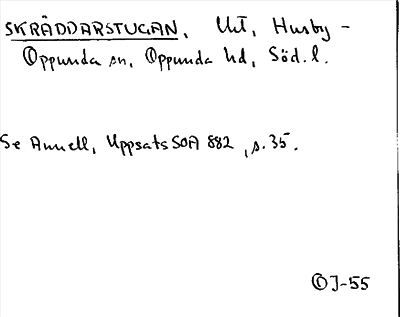 SKRÄDDARSTUGAN, Utj, Husby-
Oppunda sn, Oppunda hd, Söd. l.
Se Annell, Uppsats SOA 882, s. 35.
OJ-55